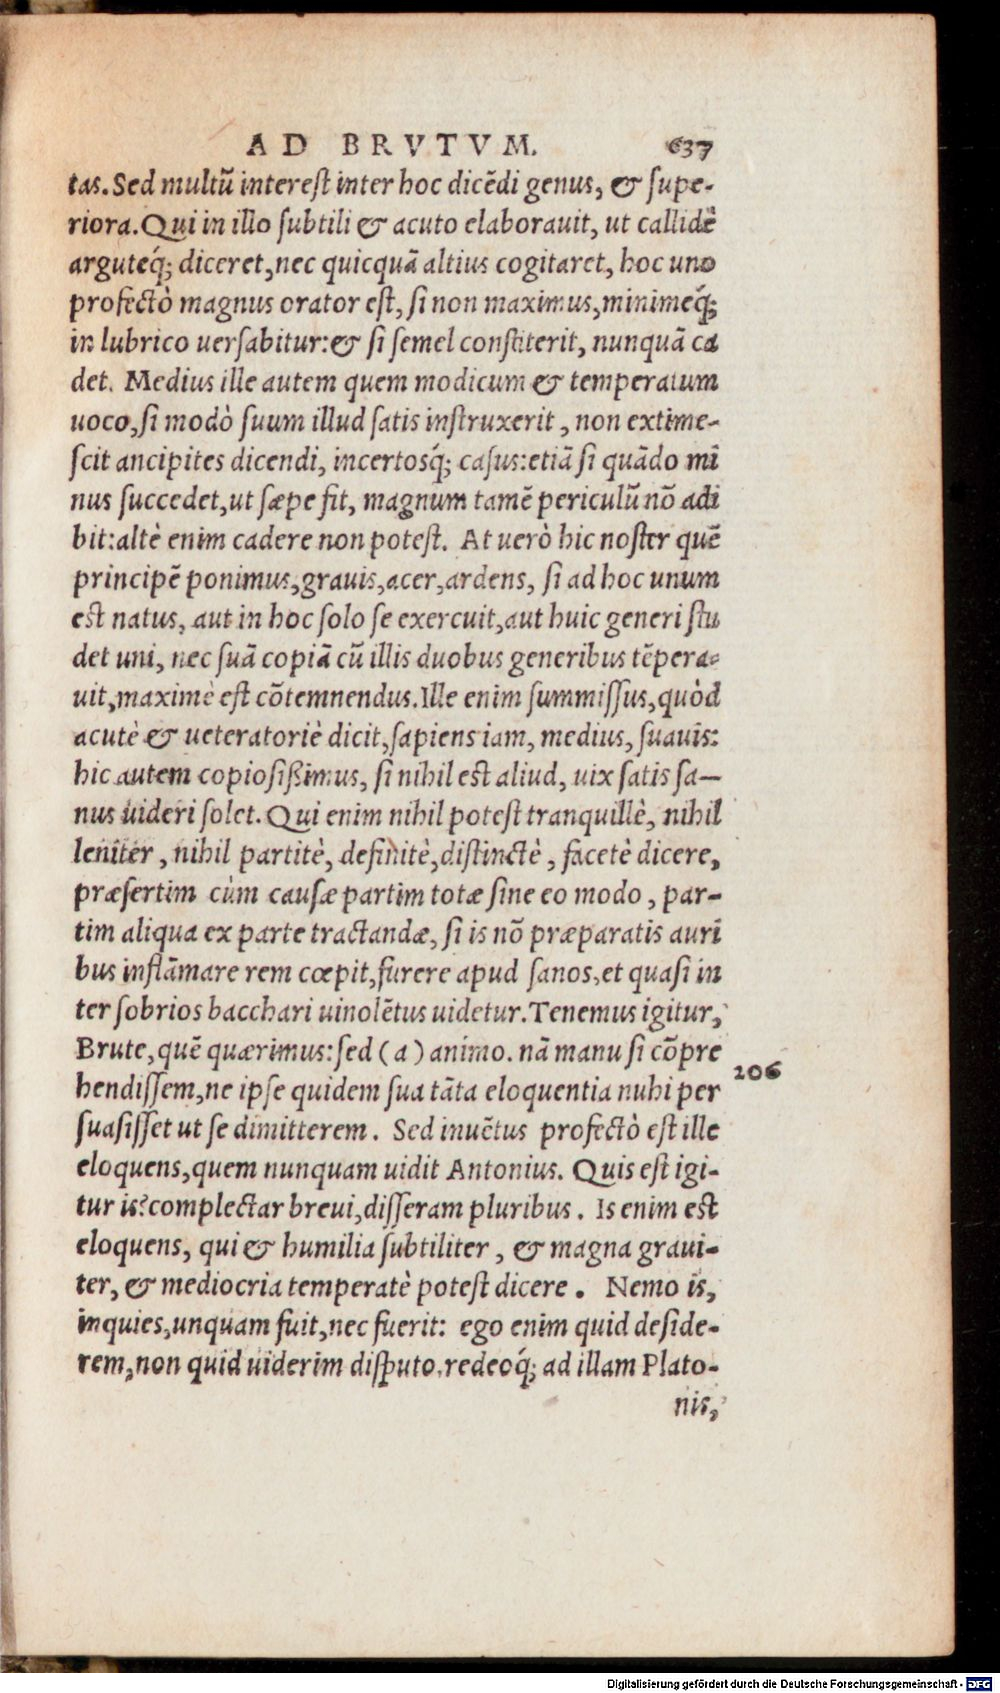 AD BRVTVM. 637
tas. Sed multũ interest inter hoc dicẽdi genus, & supe-
riora. Qui in illo subtili & acuto elaborauit, ut callidè
arguteq́; diceret, nec quicquã altius cogitaret, hoc uno
profectò magnus orator est, si non maximus, minimeq́;
in lubrico uersabitur: & si semel constiterit, nunquã ca
det. Medius ille autem quem modicum & temperatum
uoco, si modò suum illud satis instruxerit, non extime-
scit ancipites dicendi, incertosq́; casus: etiã si quãdo mi
nus succedet, ut sæpe fit, magnum tamẽ periculũ nõ adi
bit: altè enim cadere non potest. At uerò hic noster quẽ
principẽ ponimus, grauis, acer, ardens, si ad hoc unum
est natus, aut in hoc solo se exercuit, aut huic generi stu
det uni, nec suã copiã cũ illis duobus generibus tẽpera-
uit, maximè est cõtemnendus. Ille enim summissus, quòd
acutè & ueteratoriè dicit, sapiens iam, medius, suauis:
hic autem copiosißimus, si nihil est aliud, uix satis sa-
nus uideri solet. Qui enim nihil potest tranquillè, nihil
leniter, nihil partitè, definitè, distinctè, facetè dicere,
præsertim cùm causæ partim totæ sine eo modo, par-
tim aliqua ex parte tractandæ, si is nõ præparatis auri
bus inflãmare rem cœpit, furere apud sanos, et quasi in
ter sobrios bacchari uinolẽtus uidetur. Tenemus igitur,
Brute, quẽ quærimus: sed (a) animo. nã manu si cõpre
206
hendissem, ne ipse quidem sua tãta eloquentia mihi per
suasisset ut se dimitterem. Sed inuẽtus profectò est ille
eloquens, quem nunquam uidit Antonius. Quis est igi-
tur is? complectar breui, disseram pluribus. Is enim est
eloquens, qui & humilia subtiliter, & magna graui-
ter, & mediocria temperatè potest dicere. Nemo is,
inquies, unquam fuit, nec fuerit: ego enim quid deside-
rem, non quid uiderim disputo. redeoq́; ad illam Plato-
nis,
Digitalisierung gefördert durch die Deutsche Forschungsgemeinschaft - DFG